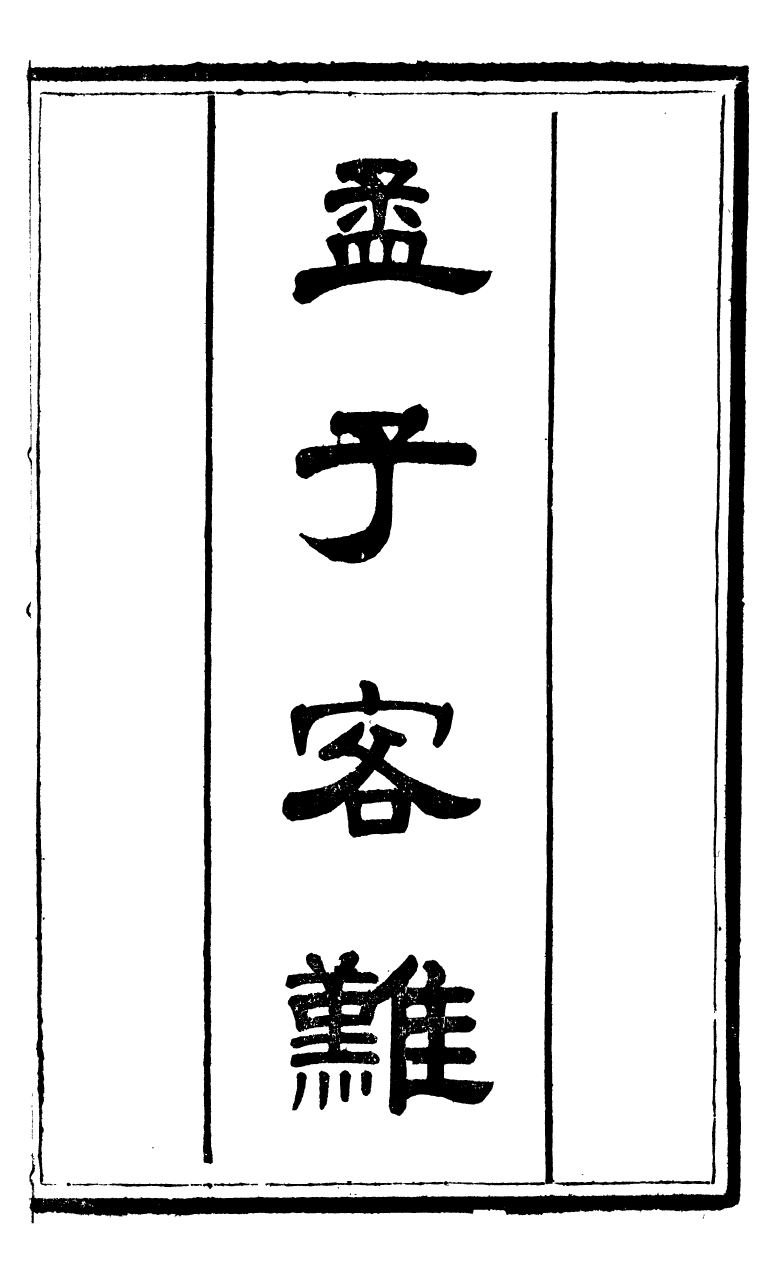 孟子客難